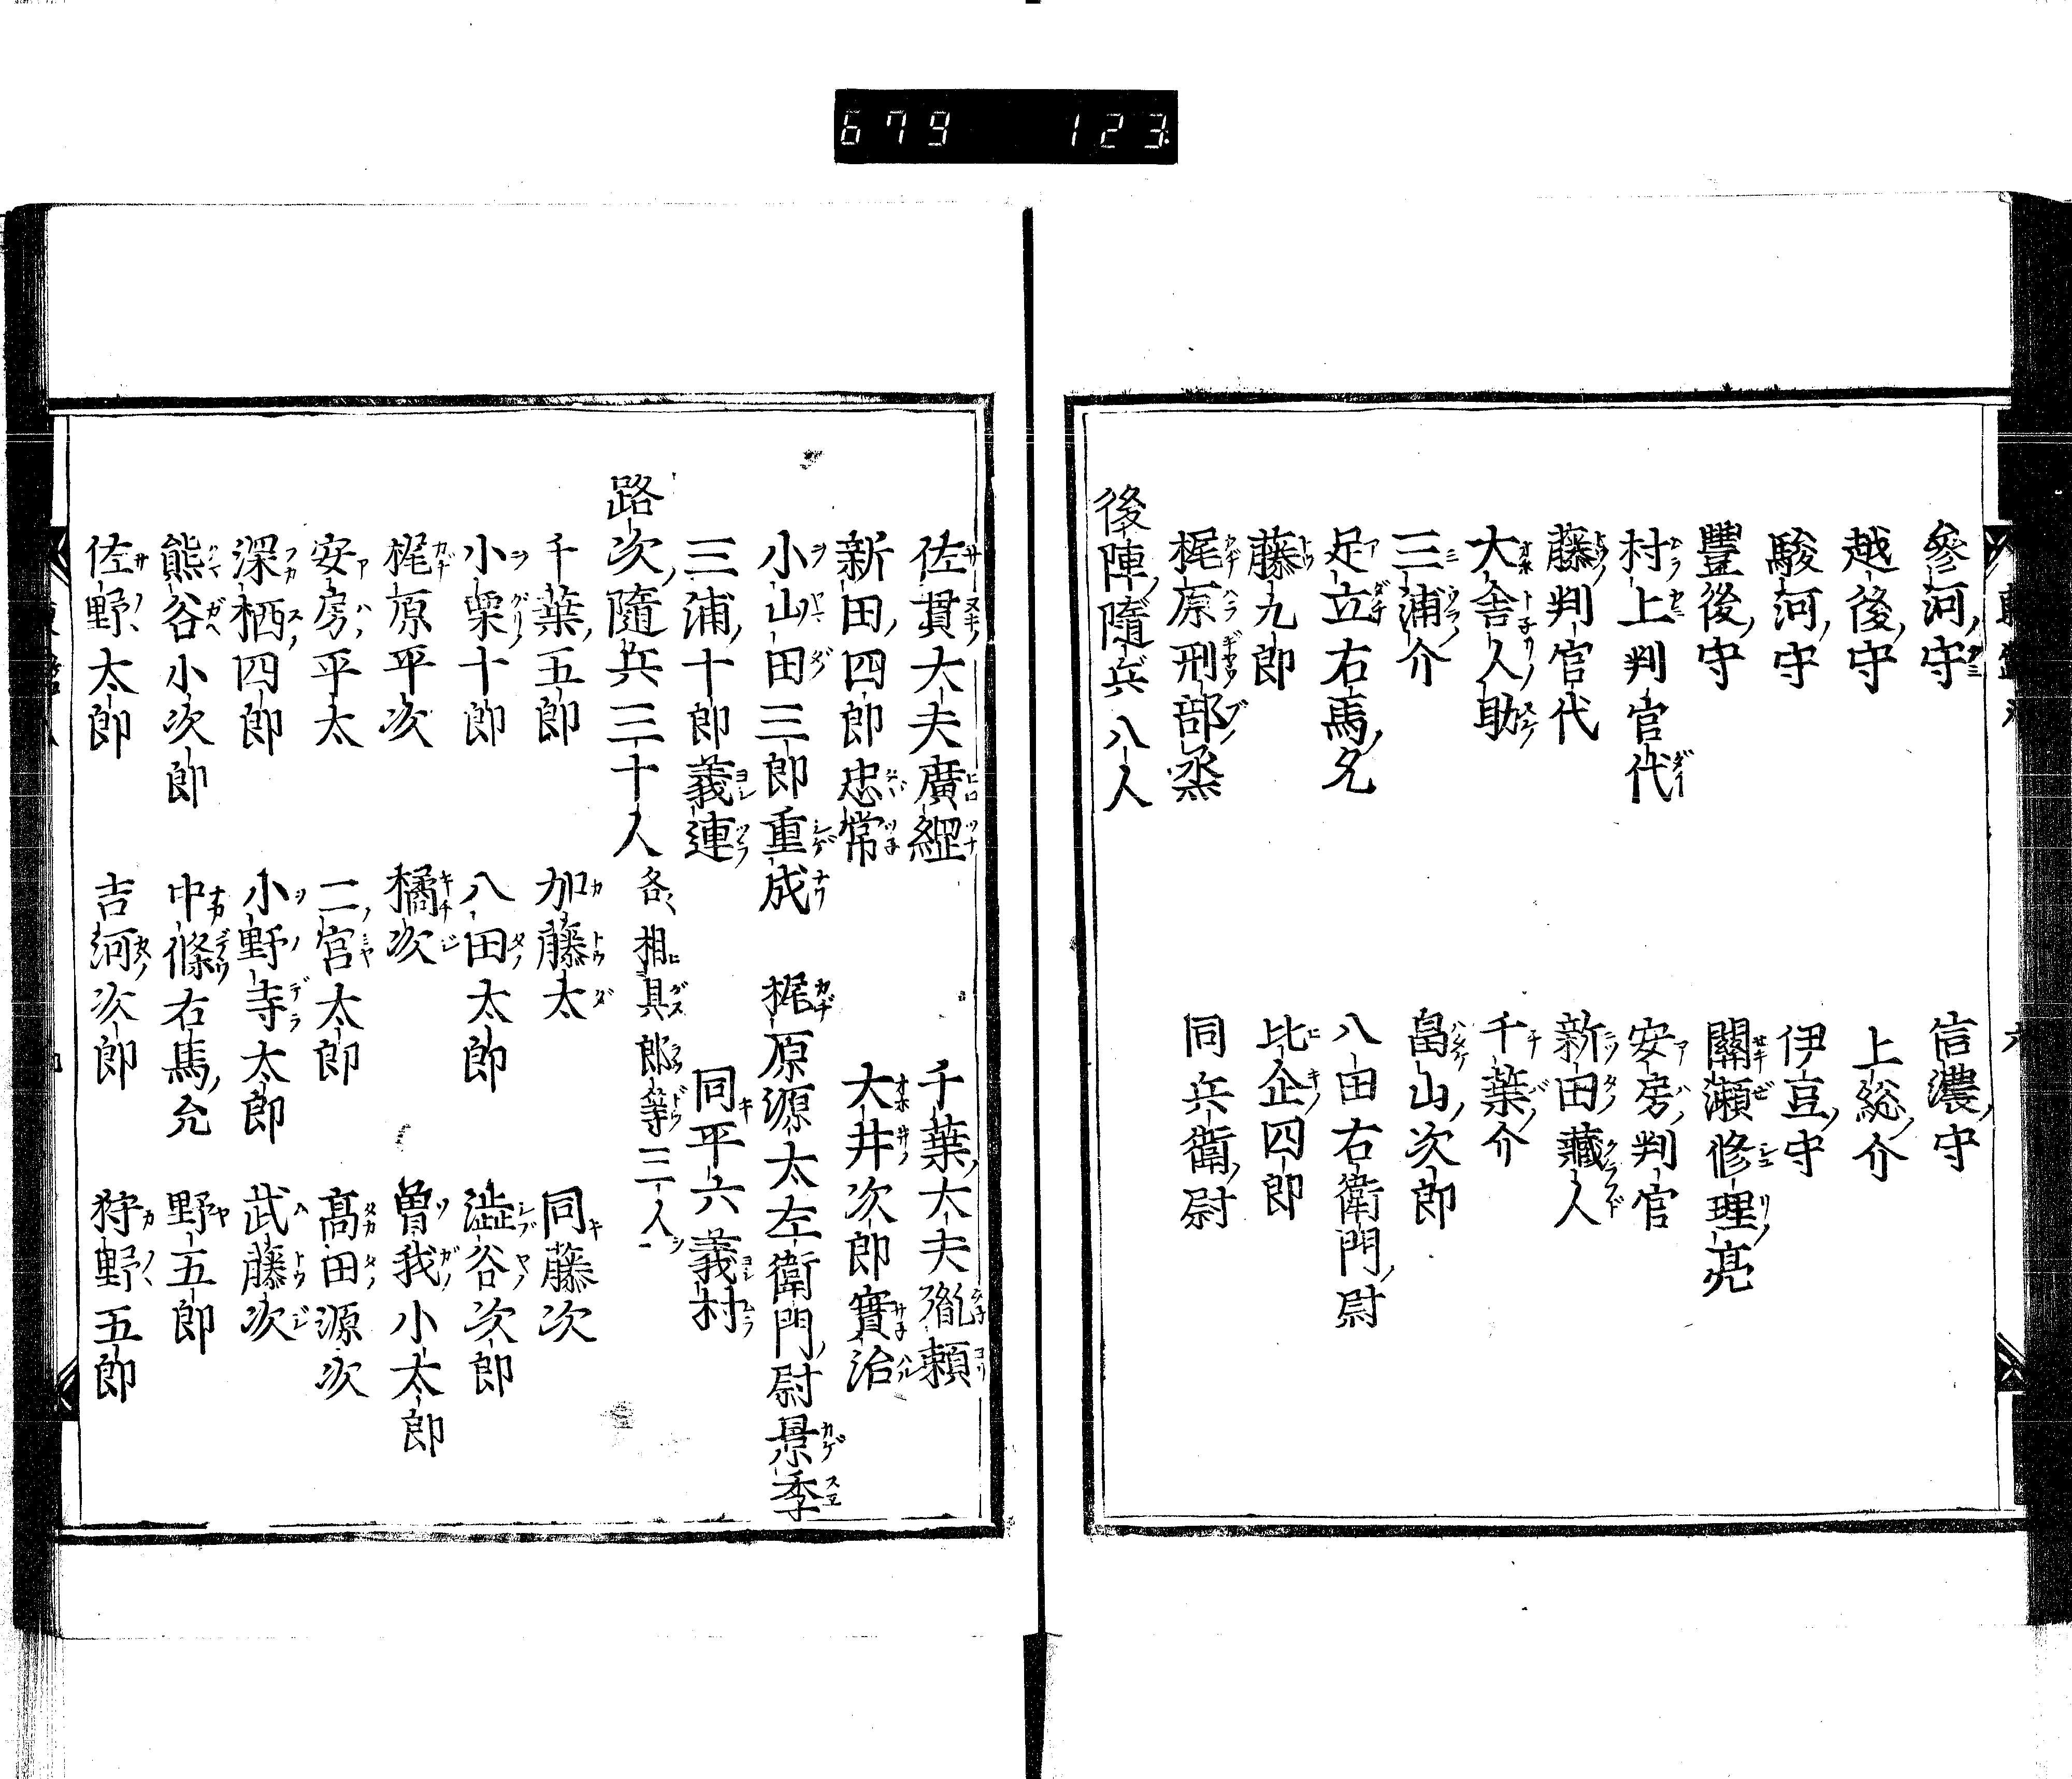 679 123
參河守 信濃守
越後守 上総介
駿河守 伊豆守
豐後守 關瀬修理亮
村上判官代 安房判官
藤判官代 新田藏人
大舎人助 千葉介
三浦介 畠山次郎
足立右馬允 八田右衛門尉
藤九郎 比企四郎
梶原刑部烝 同兵衛尉
後陣隨兵八人
佐貫大夫廣綱 千葉大夫胤頼
新田四郎忠常 大井次郎實治
小山田三郎重成 梶原源太左衛門尉景季
三浦十郎義連 同平六義村
路次隨兵三十人 各相具郎等三人
千葉五郎 加藤太 同藤次
小栗十郎 八田太郎 澁谷次郎
梶原平次 橘次 曽我小太郎
安房平太 二宮太郎 髙田源次
深栖四郎 小野寺太郎 武藤次
熊谷小次郎 中條右馬允 野五郎
佐野太郎 吉河次郎 狩野五郎